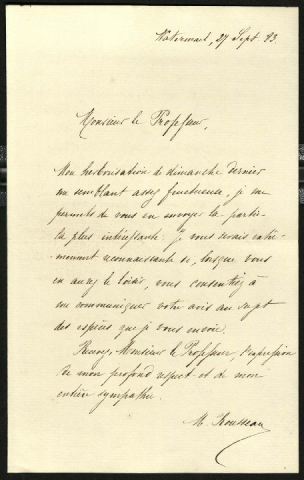 Watermael, 27 Sept 83.
Monsieur le Professeur,
Mon herborisation de dimanche dernier
me semblant assez fructueuse, je me
permets de vous en envoyer la partie
la plus intéressante. Je vous serais extrê-
mement reconnaissante si, lorsque vous
en aurez le loisir, vous consentiez à
me communiquer votre avis au sujet
des espèces que je vous envoie.
Recevez, Monsieur le Professeur, l'expression
de mon profond respect et de mon
entière sympathie.
M. Rousseau